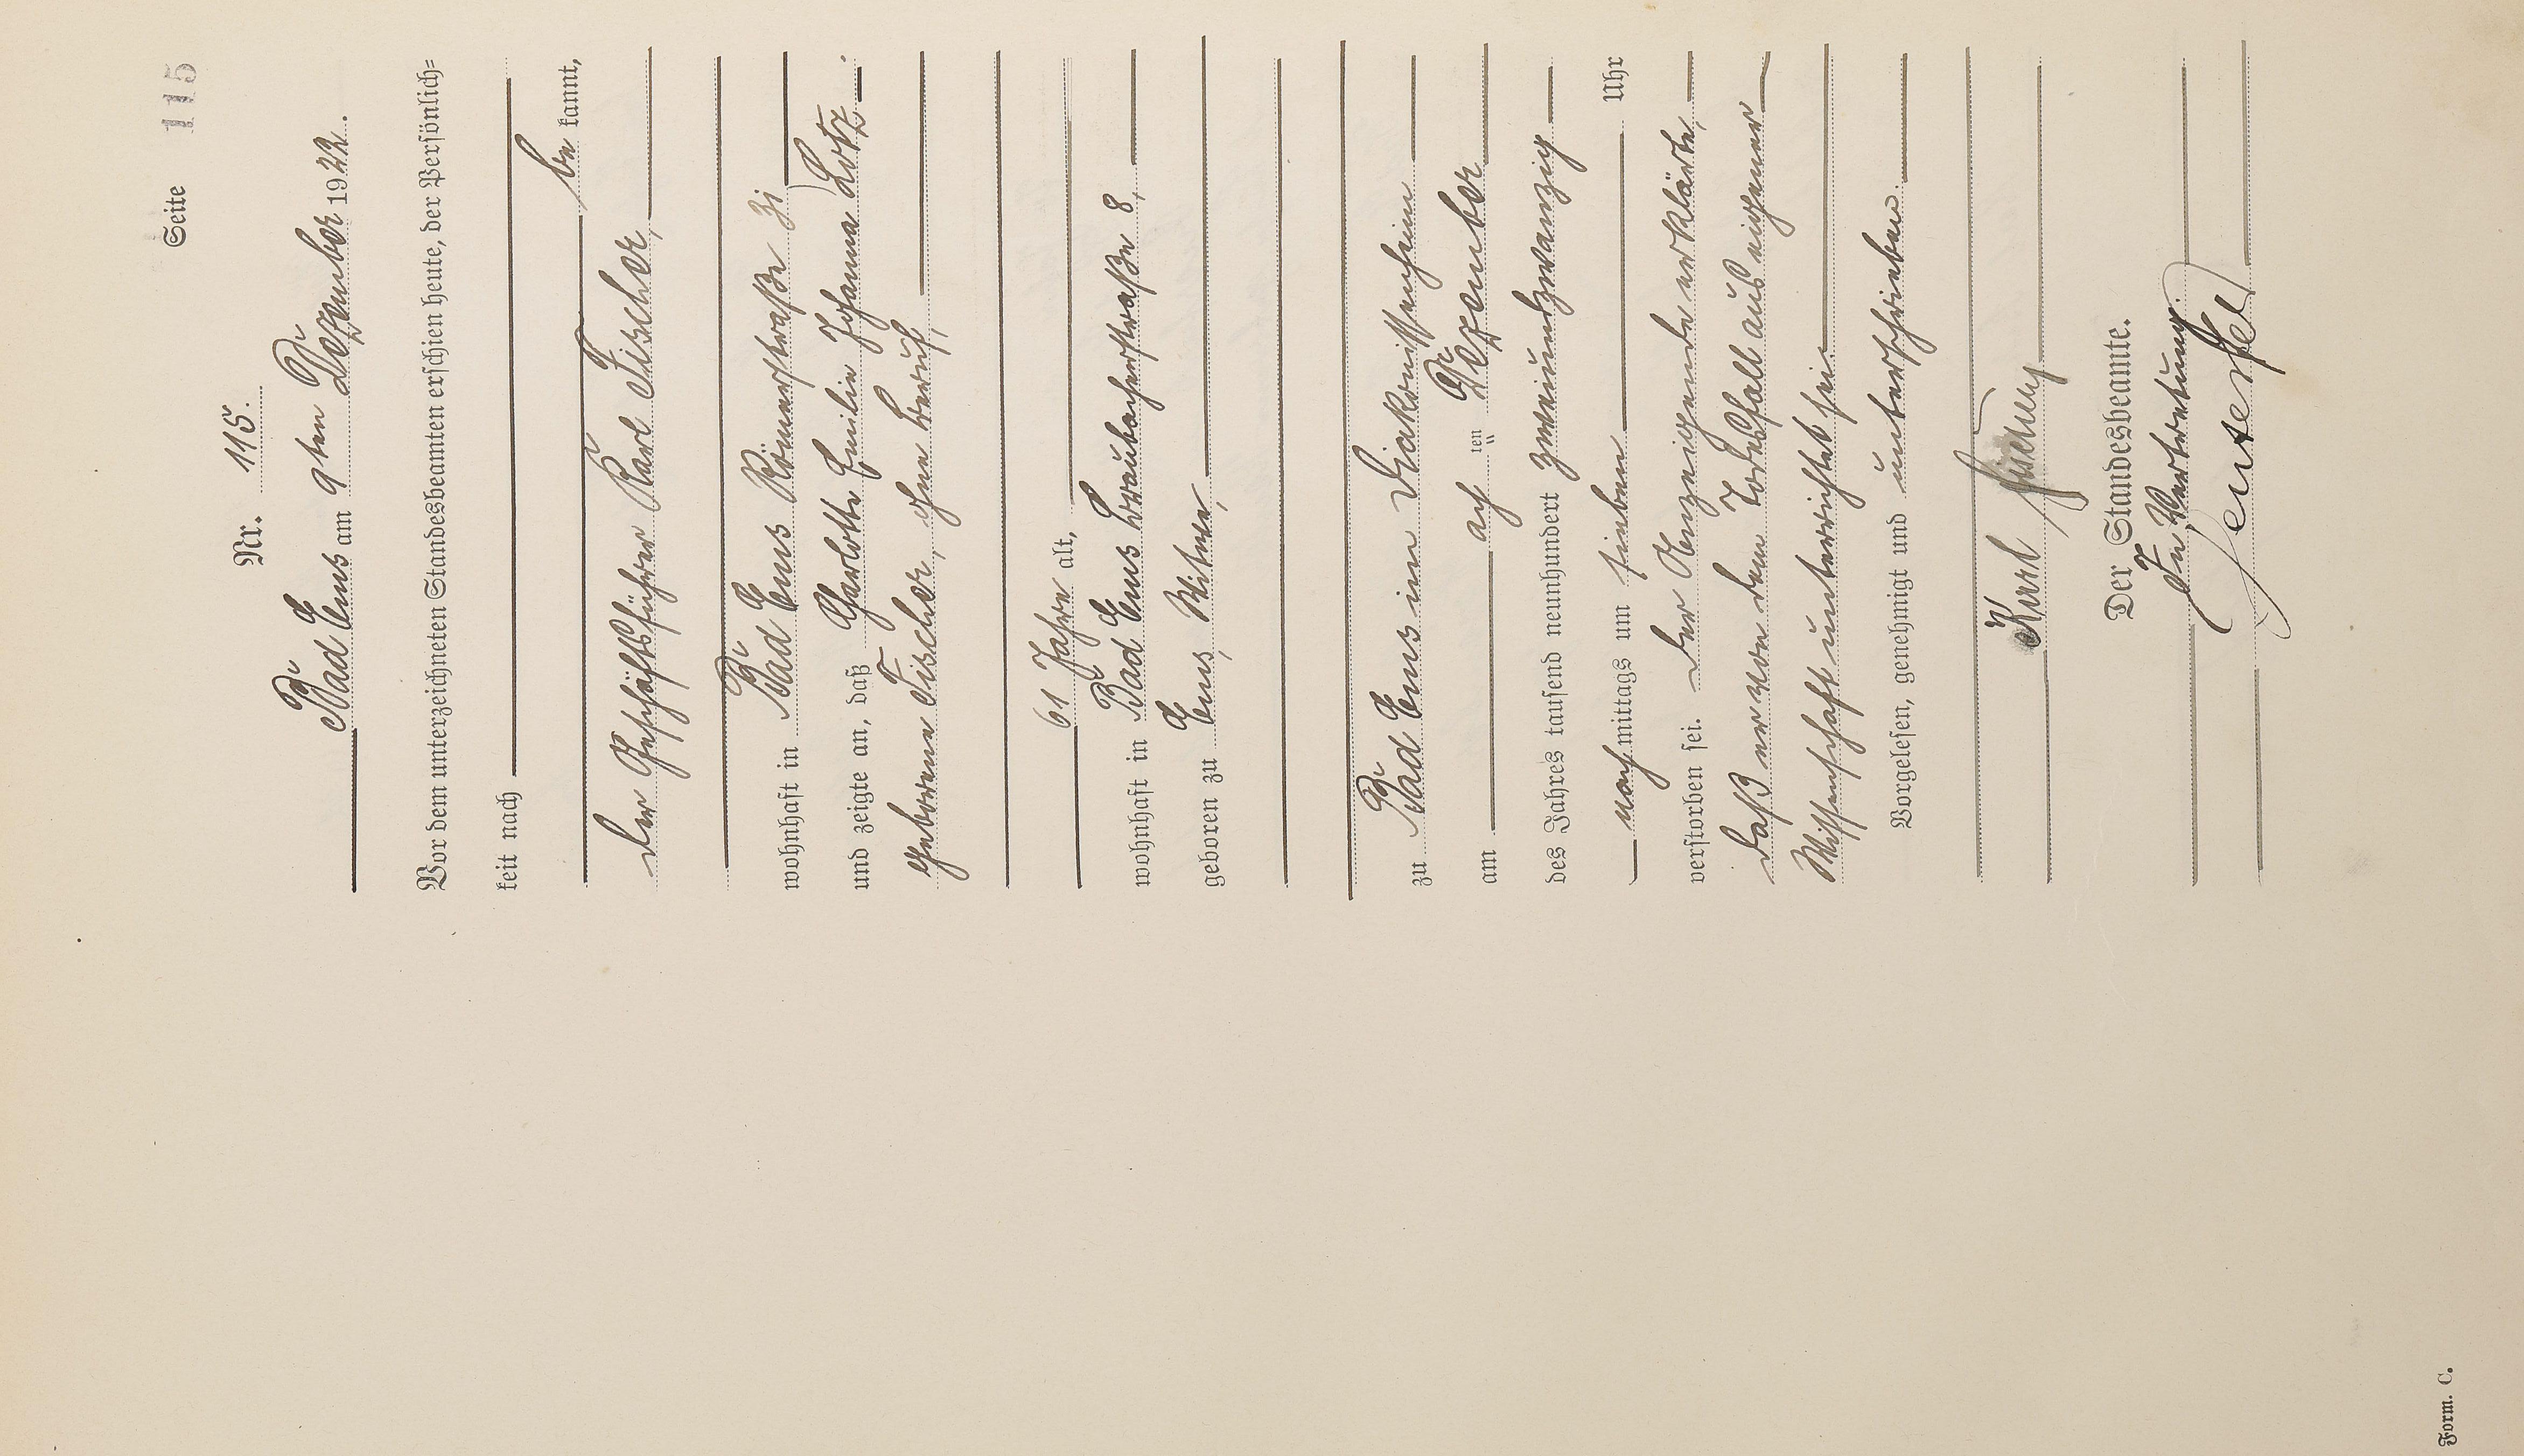 Seite 115
Nr. 115.
Bad Ems am 9ten Dezember 1922.
Vor dem unterzeichneten Standesbeamten erschien heute, der Persönlich=
keit nach
be kannt,
der Geschäftsführer Karl Fischer,
wohnhaft in Bad Ems Römerstraße 31
und zeigte an, daß Charlotte Emilie Johanna Lotz
geborene Fischer, ohne Beruf,
61 Jahre alt,
wohnhaft in Bad Ems Braubacherstraße 8,
geboren zu Ems, Witwe,
zu Bad Ems im Diakonissenheim
am ten Dezember
des Jahres tausend neunhundert zweiundzwanzig
nach mittags um sieben Uhr
verstorben sei. Der Anzeigende erklärte,
daß er von dem Todesfall aus eigener
Wissenschaft unterrichtet sei.
Vorgelesen, genehmigt und unterschrieben.
Karl Fischer
Der Standesbeamte.
In Vertretung
Form. C.